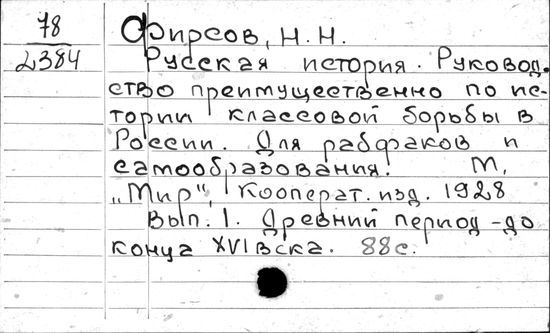 78
2384
Фирсов, Н. Н.
Русская история. Руковод-
ство преимущественно по ис-
тории классовой борьбы в
России. Для рабфаков и
самообразования. М,
„Мир", кооперат. изд. 1928
Вып. 1. Древний период - до
конца XVI века. 88 с.